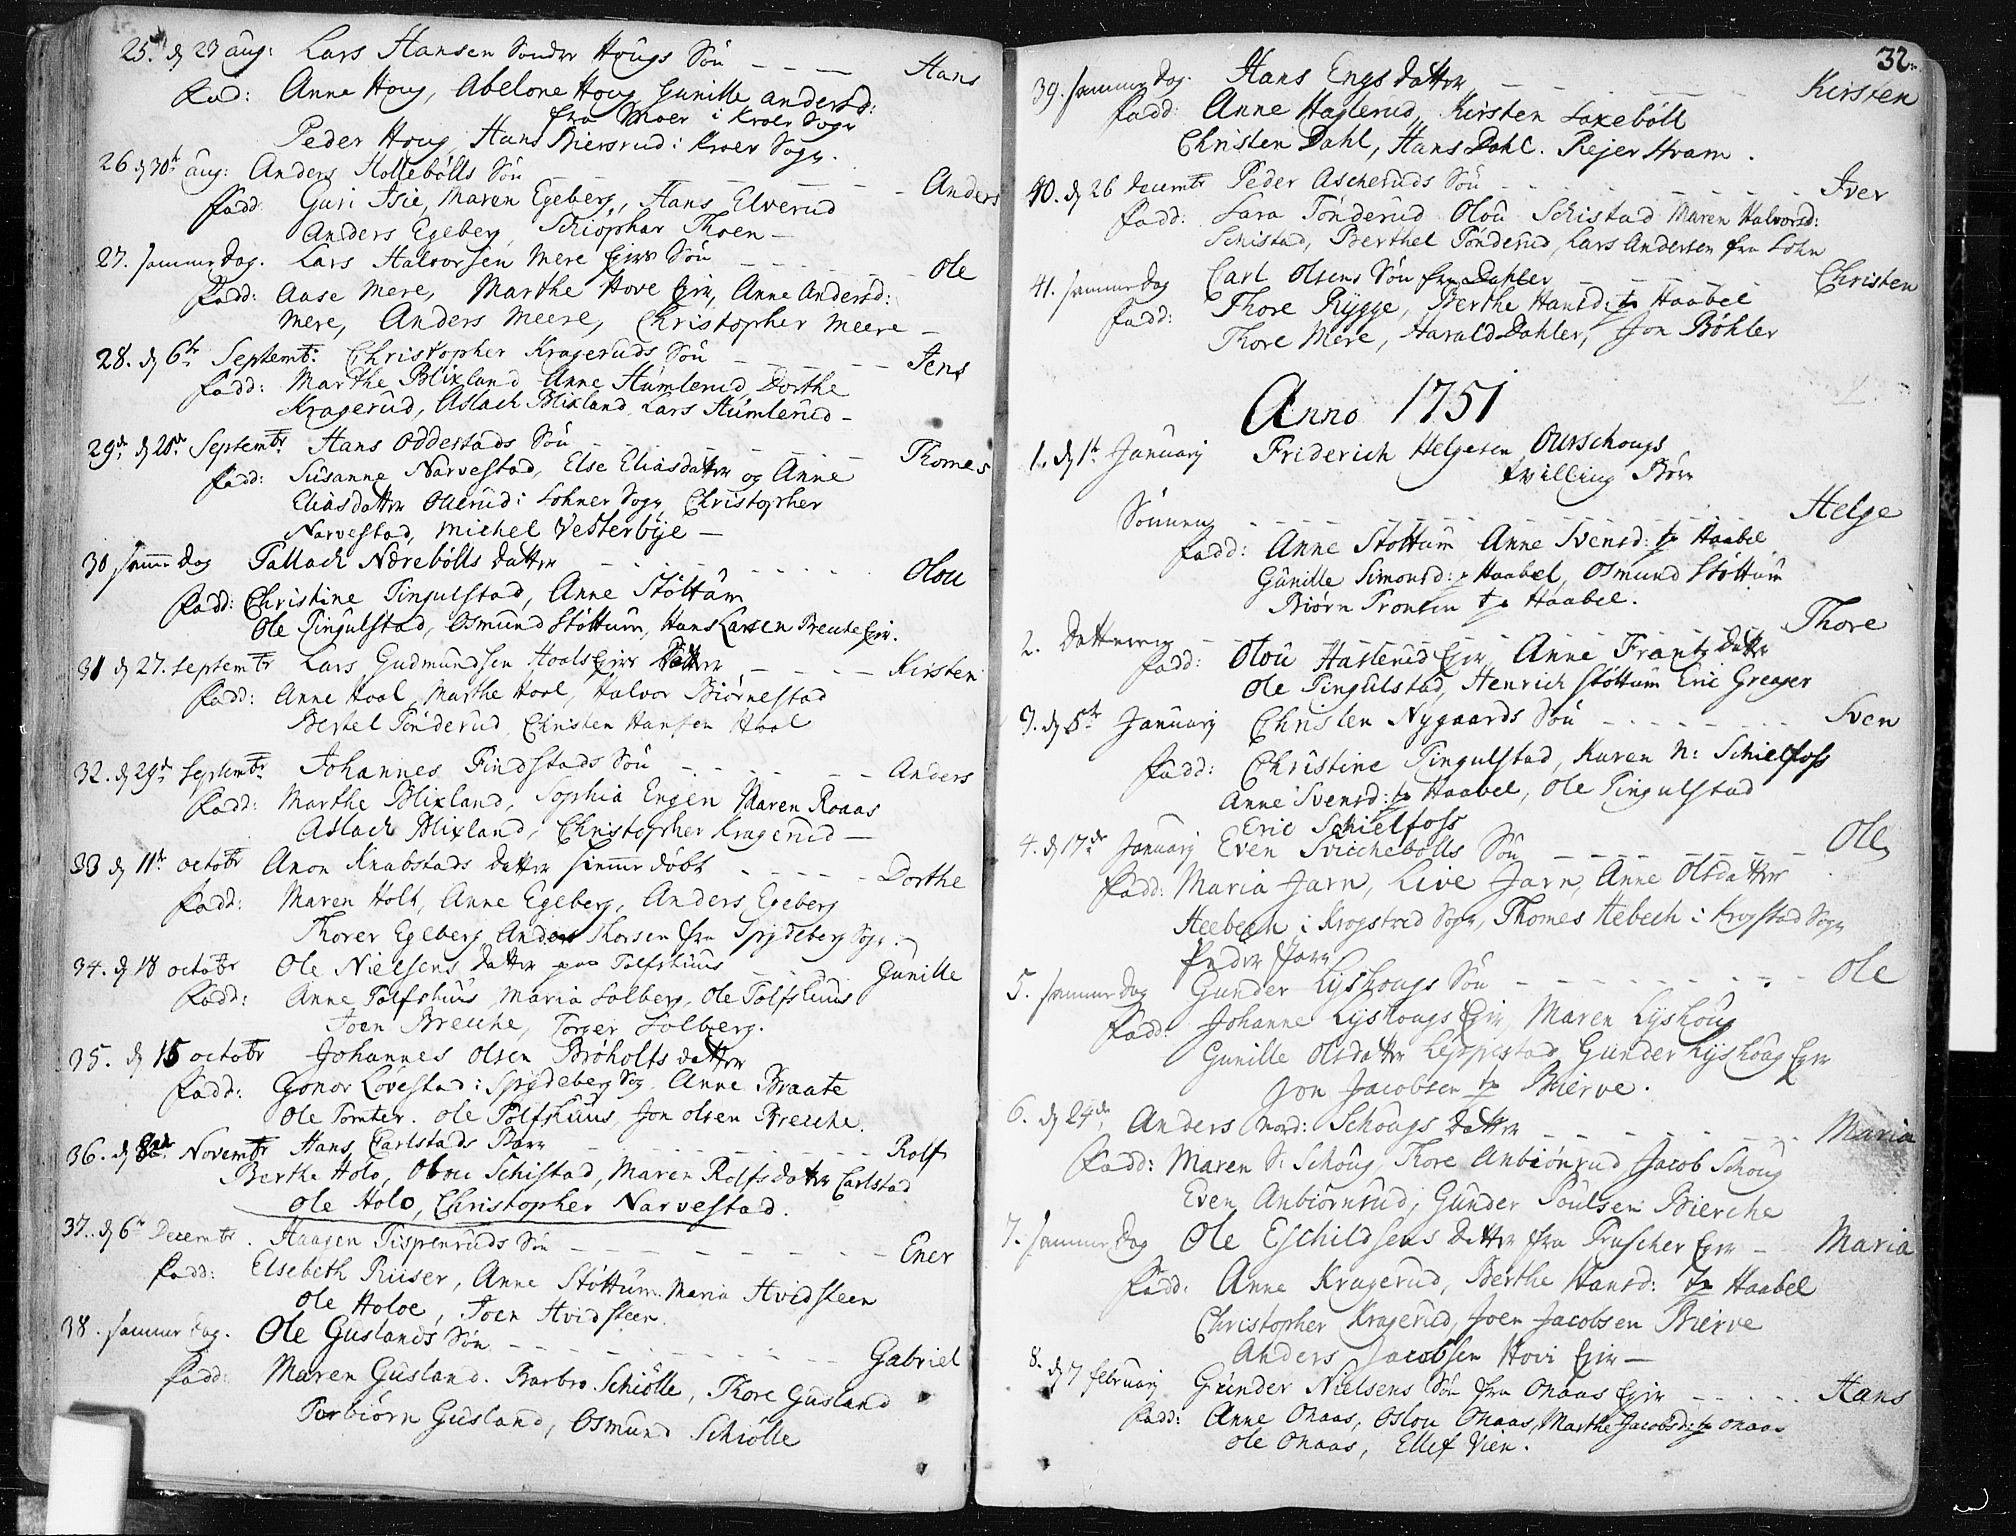 25. d 23 aug: Lars Hansen Sonder Hougs Sön - - - Hans
Fad: Anne Houg, Abelone Houg Gunille andersd:
fra Moer i Kroer Sogn
Peder Houg, Hans Biersrud i Kroer Sogn.
26 d 30t aug: Anders Hollebölls Sön - - - Anders
Fadd: Guri Isie, Maren Egeberg, Hans Elverud
Anders Egeberg, Schiöphar Thoen -
27. samme Dag. Lars Halvorsen Mere Eier Sön - - - Ole
Fadd: Aase Mere, Marthe Hove Eir, Anne Andersd:
Mere, Anders Meere, Christopher Meere -
28. d 6te Septemb: Christopher Kragerüds Sön - - - Jens
Fadd: Marthe Blixland Anne Humlerud Dorthe
Kragerud, Aslach Blixland Lars Humlerud -
29de d 20de Septembr Hans Oddestads Sön - - - Thomes
Fadd: Susanne Narvestad, Else Eliasdatter og Anne
Eliasdatter Ollerud i Sohner Sogn, Christopher
Narvestad, Michel Vesterbye -
30 samme Dag Tallach Nærebölls datter - - - Olou
Fadd: Christine Tingulstad, Anne Stöttum
Ole Tingulstad, Osmund Stöttum, Hans Larsen Breche Eir.
31 d 27. septembr Lars Gudmundsen Hools Eier Datter - - - Kirsten
Fadd: Anne Hool, Marthe Hool, Halvor Biörnestad
Bertel Tönderud, Christen Hansen Hool
32. d 29de septembr Johannes Findstads Sön - - - Anders
Fadd: Marthe Blixland, Sophia Engen Maren Roaas
Aslach Blixland, Christopher Kragerud -
33 d 11te octobr Aron Knabstads datter hiemme döbt - - - Dorthe
Fadd: Maren Holt, Anne Egeberg, Anders Egeberg
Thorer Egeberg Anders Thorsen fra Spydeberg Sogn.
34. d 18 octobr Ole Nielsens datter paa Tolfshuus - - - Gunille
Fadd: Anne Tolfshuus, Maria Solberg, Ole Tolfshuus
Joen Breche, Torger Solberg.
35. d 15 octobr Johannes Olsen Bröholts datter
Fadd: Gonor Lövestad i Spydeberg Sog. Anne Braate
Ole Tomter. Ole Tolfshuus, Jon olsen Breche.
36. d 8de Novembr Hans Carlstads Barn - - - Rolf
Berthe Holo, Olou Schistad, Maren Rolfsdatter Carlstad
Ole Holo, Christopher Narvestad.
37. d 6te Decembr. Haagen Tispenruds Sön - - - Ener
Fadd: Elsebeth Riiser, Anne Stöttum. Maria Hvidsteen
Ole Holoe, Joen Hvidsteen.
38. samme dag. Ole Guslands Sön - - - Gabriel
Fadd: Maren Gusland. Barbro Schiölle, Thore Gusland
Torbiörn Gusland, Osmund Schiölle
32.
39. samme Dag. Hans Engs datter - - - Kirsten
Fadd: Anne Haglerud, Kirsten Saxeböll
Christen Dahl, Hans Dahl. Rejer Hvam.
40. d 26 decembr Peder Ascheruds Sön - - - Iver
Fadd: Sara Tönderud Olou Schistad Maren Halvorsd:
Schistad, Berthel Tönderud, Lars Andersen fra Sohn
41. samme Dag Carl Olsens Sön fra Dahler - - - Christen
Fadd: Thore Rygge, Berthe Hansd: fr Haabel
Thore Mere, Harald Dahler, Jon Böhler
Anno 1751
1. d 1te January Friderich Helgesen Ourschougs
tvilling Börn
Sönnen - - - Helge
Fadd: Anne Stöttum Anne Svensd: fr Haabel
Gunille Simonsd: fr Haabel, Osmund Stöttum
Biörn Tronsen fr Haabel.
2. Datteren - - - Thore
Fadd: Olou Haslerud Eir, Anne Frantz datter
Ole Tingulstad, Henrich Stöttum Eric Greager
3. d 5te January Christen Nygaards Sön - - - Sven
Fadd: Christine Tingulstad, Karen N: Schielfoss
Anne Svensd: fr Haabel, Ole Tingulstad
Eric Schielfoss
4. d 17de January Even Svichebölls Sön - - - Ole
Fadd: Maria Jarn, Live Jarn, Anne Olsdatter
Heebech i Krogstad Sogn, Thomes Hebech i Krogstad Sogn
Peder Jarn
5. samme Dag Gunder Lyshougs Sön - - - Ole
Fadd: Johanne Lyshougs Eir Maren Lyshoug
Gunille Olsdatter Leppestad Gunder Lyshoug Eir
Jon Jacobsen fr Bierve.
6. d 24de Anders Nord: Schougs Datter - - - Maria
Fadd: Maren S: Schoug, Thore Anbiönrud Jacob Schoug
Even Anbiörnrud, Gunder Poulsen Bierche
7. samme Dag Ole Eschildsens Datter fra Fruscher Eir - Maria
Fadd: Anne Kragerud, Berthe Hansd: fr Haabel
Christopher Kragerud, Joen Jacobsen Bierve
Anders Jacobsen Hovi Eir -
8. d 7 february Gunder Nielsens Sön fra Onaas Eir - - - Hans
Fadd: Anne Onaas, Oslou Onaas, Marthe Jacobsd: fr Onaas
Ole Onaas, Ellef Vien.